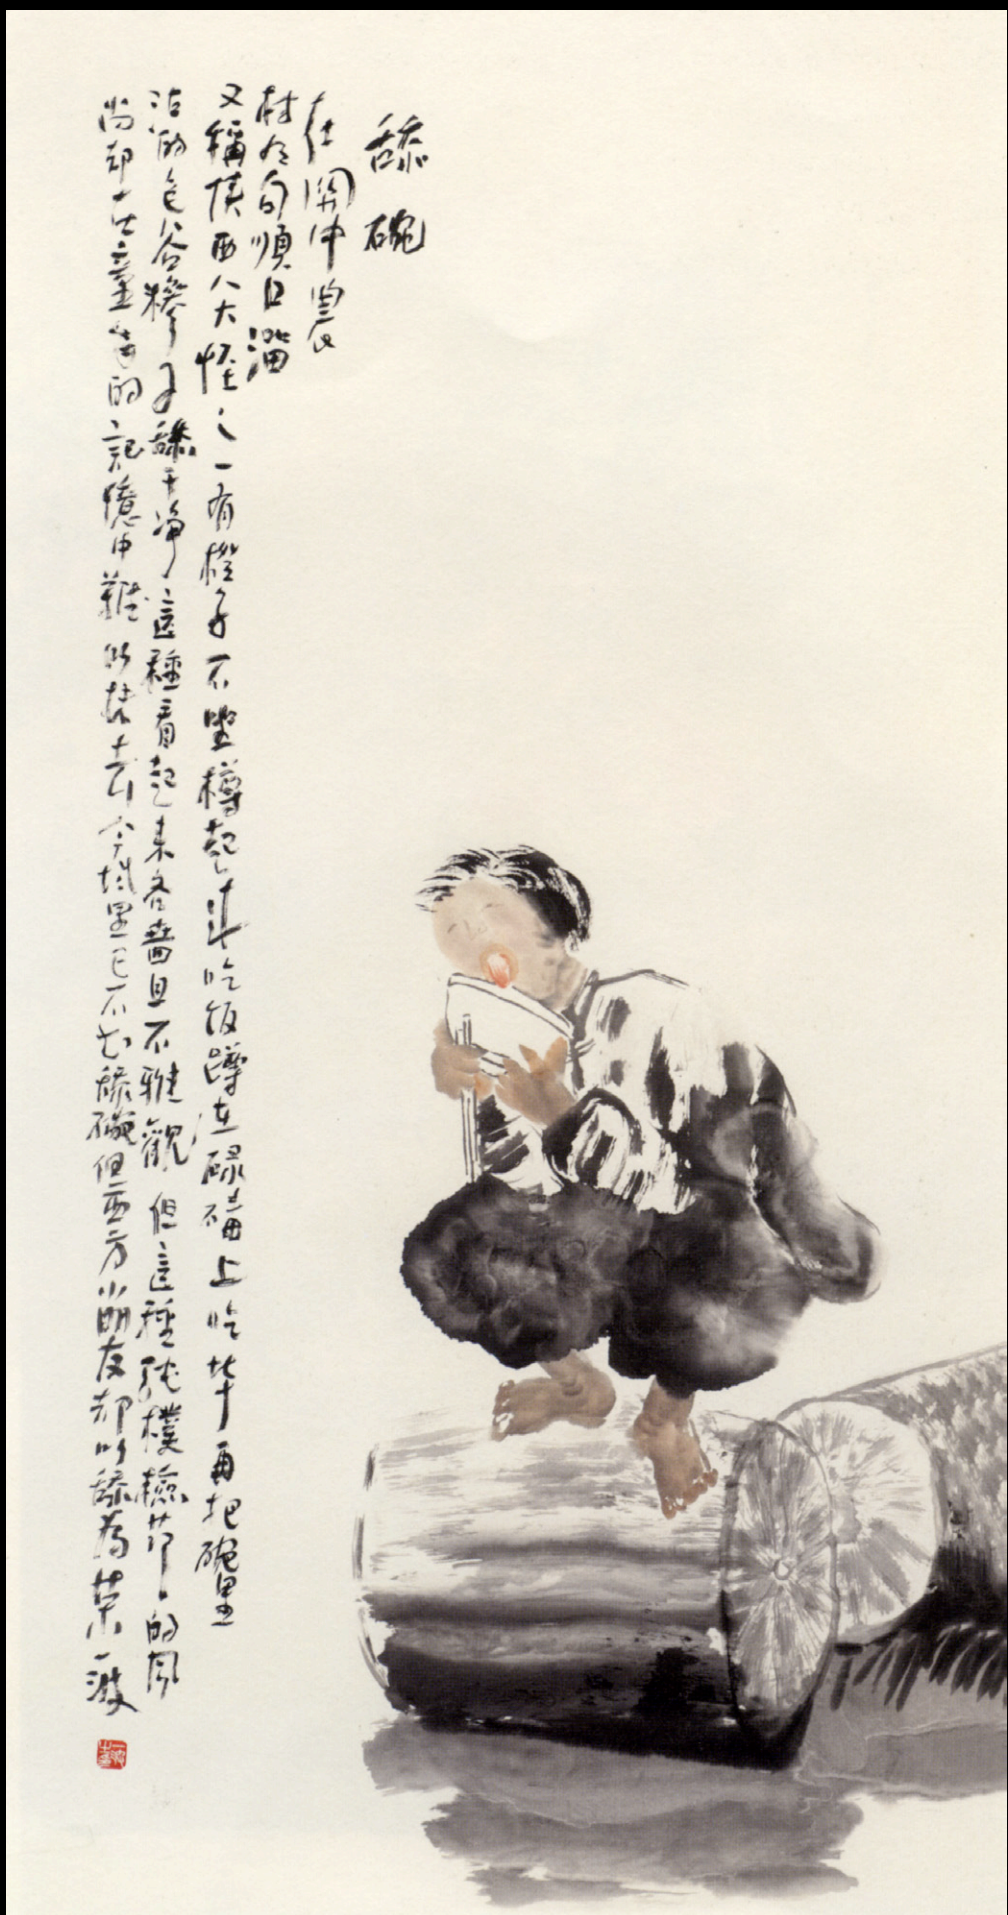 舔碗
在関中農
村有句順口溜
又稱陝西八大怪之一有櫈子不坐樽起来吃饭蹲在碌碡上吃毕再把碗里
沾的包谷糁子舔干净這種看起来吝嗇且不雅觀但這種純樸檢节的風
尚却在童年的記憶中難以抹去今城里已不舔碗但西方小朋友却以舔為荣一波